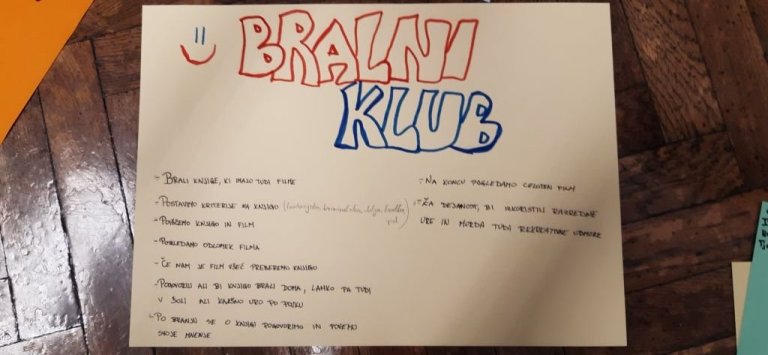 BRALNI
KLUB
- BRALI KNJIGE, KI IMAJO TUDI FILME
- POSTAVIMO KRITERIJE NA KNJIGO (fantazijska, kriminalistična, daljša, kratka
- POVEŽEMO KNJIGO IN FILM
- POGLEDAMO ODLOMEK FILMA
- ČE NAM JE FILM VŠEČ PREBEREMO KNJIGO
- POGOVORILI ALI BI KNJIGO BRALI DOMA, LAHKO PA TUDI
V ŠOLI ALI KAKŠNO URO PO POUKU
- PO BRANJU SE O KNJIGI POGOVORIMO IN POVEMO
SVOJE MNENJE
- NA KONCU POGLEDAMO CELOTEN FILM
- ZA DEJAVNOST BI IZKORISTILI RAZREDNE
URE IN MORDA TUDI REKREATIVNE ODMORE